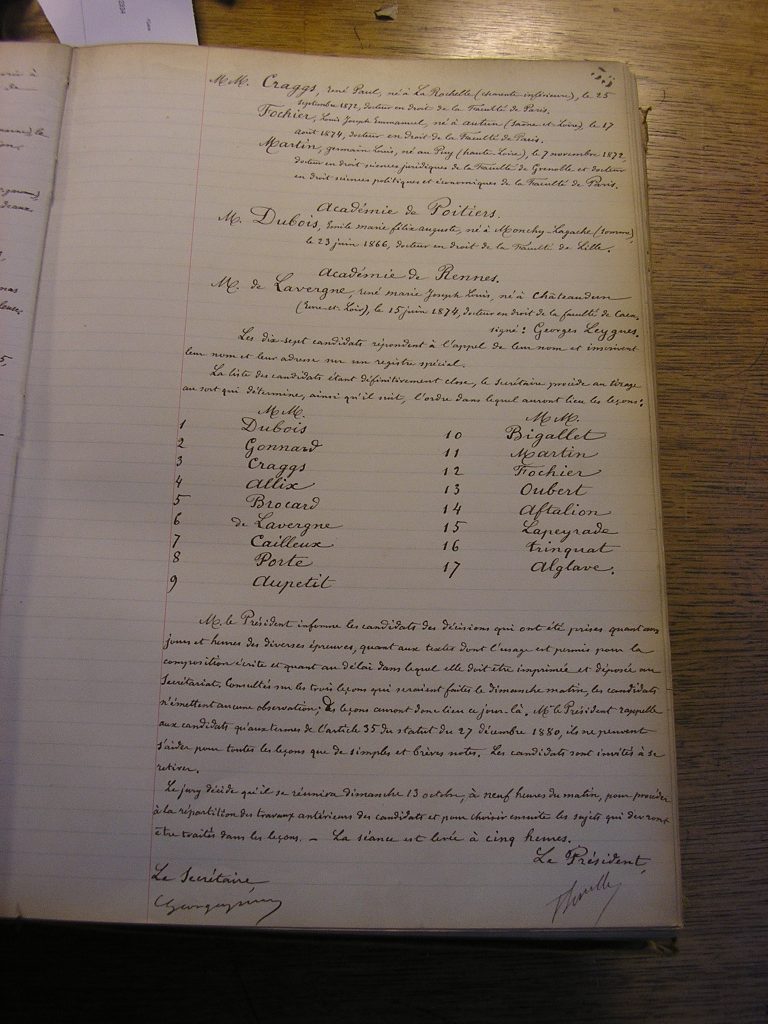 55
MM. Craggs, rené Paul, né à La Rochelle (charente inférieure), le 25
septembre 1872, docteur en droit de la Faculté de Paris.
Fochier, Louis Joseph Emmanuel, né à autun (Saône-et-Loire), le 17
août 1874, docteur en droit de la Faculté de Paris.
Martin, germain Louis, né au Puy (haute-Loire), le 7 novembre 1872,
docteur en droit sciences juridiques de la Faculté de Grenoble et docteur
en droit sciences politiques et économiques de la Faculté de Paris.
Académie de Poitiers.
M. Dubois, Emile marie félix auguste, né à Monchy-Lagache (somme),
le 23 juin 1866, docteur en droit de la Faculté de Lille.
Académie de Rennes.
M. de Lavergne, rené marie Joseph Louis, né à Châteaudun
(Eure-et-Loir), le 15 juin 1874, docteur en droit de la faculté de Caen.
signé : Georges Leygues.
Les dix-sept candidats répondent à l'appel de leur nom et inscrivent
leur nom et leur adresse sur un registre spécial.
La liste des candidats étant définitivement close, le secrétaire procède au tirage
au sort qui détermine, ainsi qu'il suit, l'ordre dans lequel auront lieu les leçons :
MM.
1 Dubois
2 Gonnard
3 Craggs
4 Allix
5 Brocard
6 de Lavergne
7 Cailleux
8 Porte
9 Aupetit
MM.
10 Bigallet
11 Martin
12 Fochier
13 Oubert
14 Aftalion
15 Lapeyrade
16 Trinquat
17 Alglave.
M. le Président informe les candidats des décisions qui ont été prises quant aux
jours et heures des diverses épreuves, quant aux textes dont l'usage est permis pour la
composition écrite et quant au délai dans lequel elle doit être imprimée et déposée au
Secrétariat. Consultés sur les trois leçons qui seraient faites le dimanche matin, les candidats
n'émettent aucune observation; les leçons auront donc lieu ce jour-là. M. le Président rappelle
aux candidats qu'aux termes de l'article 35 du statut du 27 décembre 1880, ils ne peuvent
s'aider pour toutes les leçons que de simples et brèves notes. Les candidats sont invités à se
retirer.
Le jury décide qu'il se réunira dimanche 13 octobre, à neuf heures du matin, pour procéder
à la répartition des travaux antérieurs des candidats et pour choisir ensuite les sujets qui devront
être traités dans les leçons. — La séance est levée à cinq heures.
Le Président,
Le Secrétaire